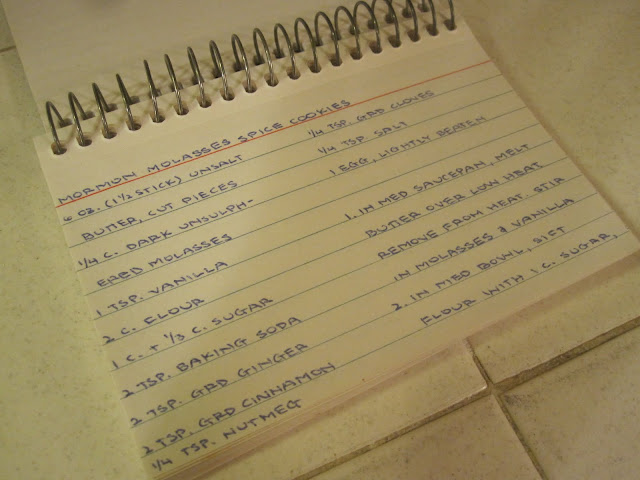 MORMON MOLASSES SPICE COOKIES
6 OZ. (1 1/2 STICK) UNSALT
BUTTER, CUT PIECES
1/4 C. DARK UNSULPH-
ERED MOLASSES
1 TSP. VANILLA
2 C. FLOUR
1 C. + 1/3 C. SUGAR
2 TSP. BAKING SODA
2 TSP. GRD GINGER
2 TSP. GRD CINNAMON
1/4 TSP. NUTMEG
1/4 TSP. GRD CLOVES
1/4 TSP. SALT
1 EGG, LIGHTLY BEATEN
1. IN MED SAUCEPAN, MELT
BUTTER OVER LOW HEAT
REMOVE FROM HEAT. STIR
IN MOLASSES & VANILLA
2. IN MED BOWL, SIFT
FLOUR WITH 1 C. SUGAR,